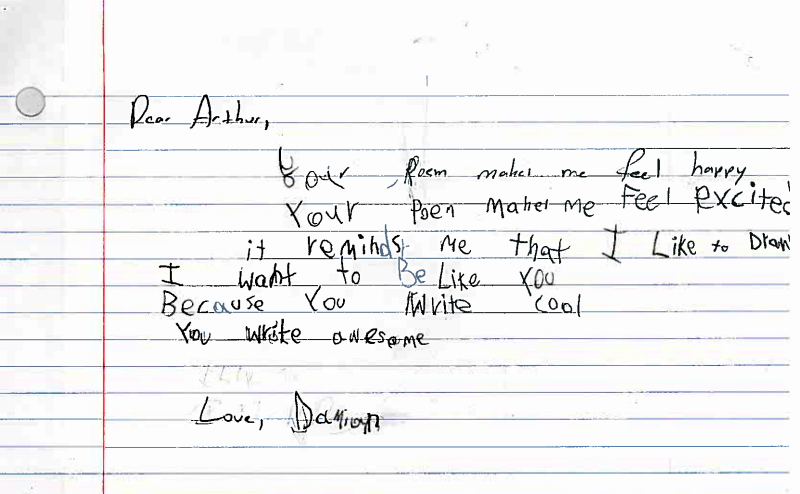 Dear Arthur,
Your Poem makes me feel happy
Your Poem Makes me Feel Excited
it reminds me that I Like to Draw
I want to Be Like You
Because You Write cool
You write awesome
Love, Damian